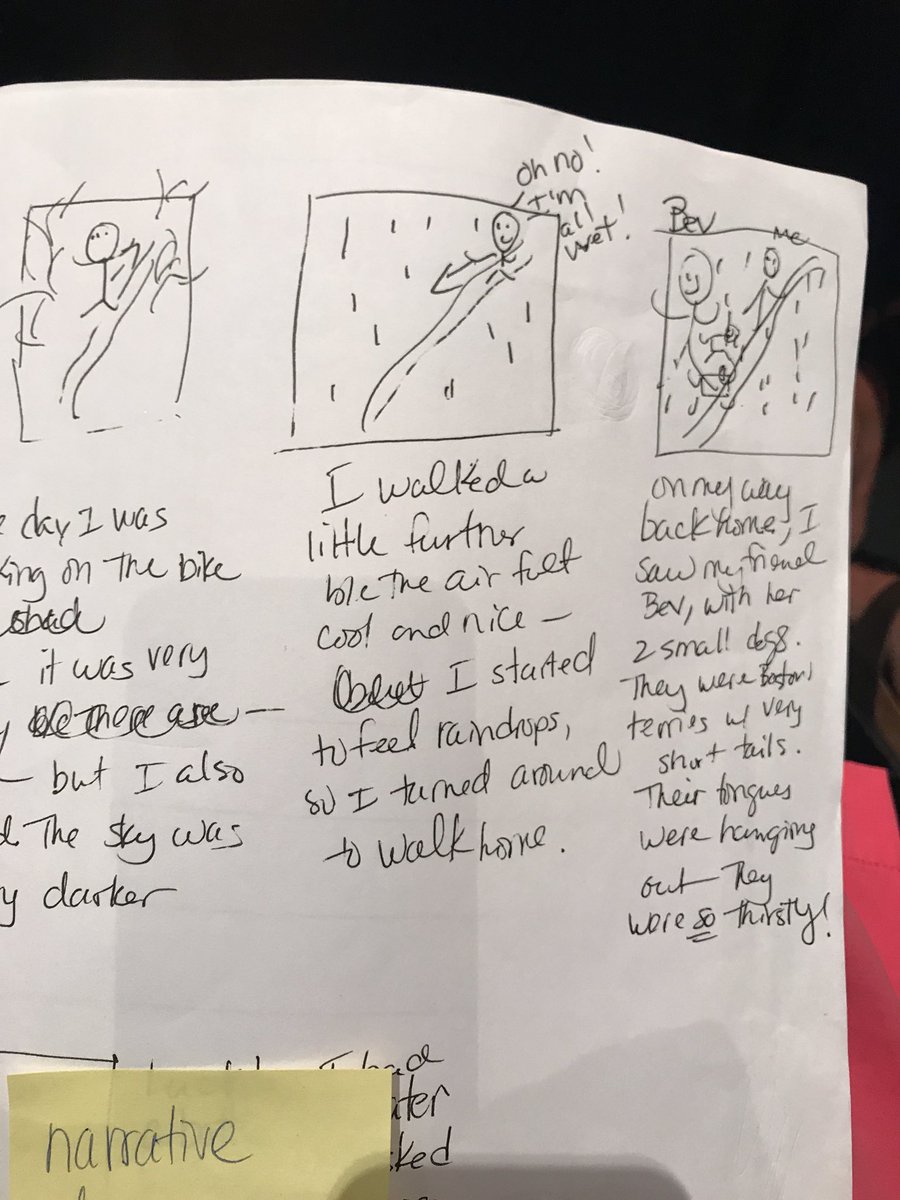 oh no!
I'm
all
wet!
Bev
me
e day I was
king on the bike
it was very
y
— but I also
d. The sky was
y darker
I walked a
little further
b/c The air felt
cool and nice —
I started
to feel raindrops,
so I turned around
to walk home.
on my way
back home, I
saw my friend
Bev, with her
2 small dogs.
They were Boston
terries w/ very
short tails.
Their tongues
were hanging
out — They
were so thirsty!
I had
ater
ked
narrative